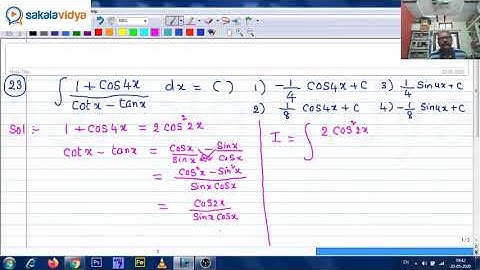 sakalavidya
23 ∫ (1 + Cos4x)/(Cotx - tanx) dx = ( ) 1) -1/4 Cos4x + C 3) 1/4 Sin4x + C
2) 1/8 Cos4x + C 4) -1/8 Sin4x + C
Sol :- 1 + Cos4x = 2 Cos²2x
Cotx - tanx = Cosx/Sinx - Sinx/Cosx
= (Cos²x - Sin²x)/(Sinx Cosx)
= Cos2x/(Sinx Cosx)
I = ∫ 2 Cos²2x